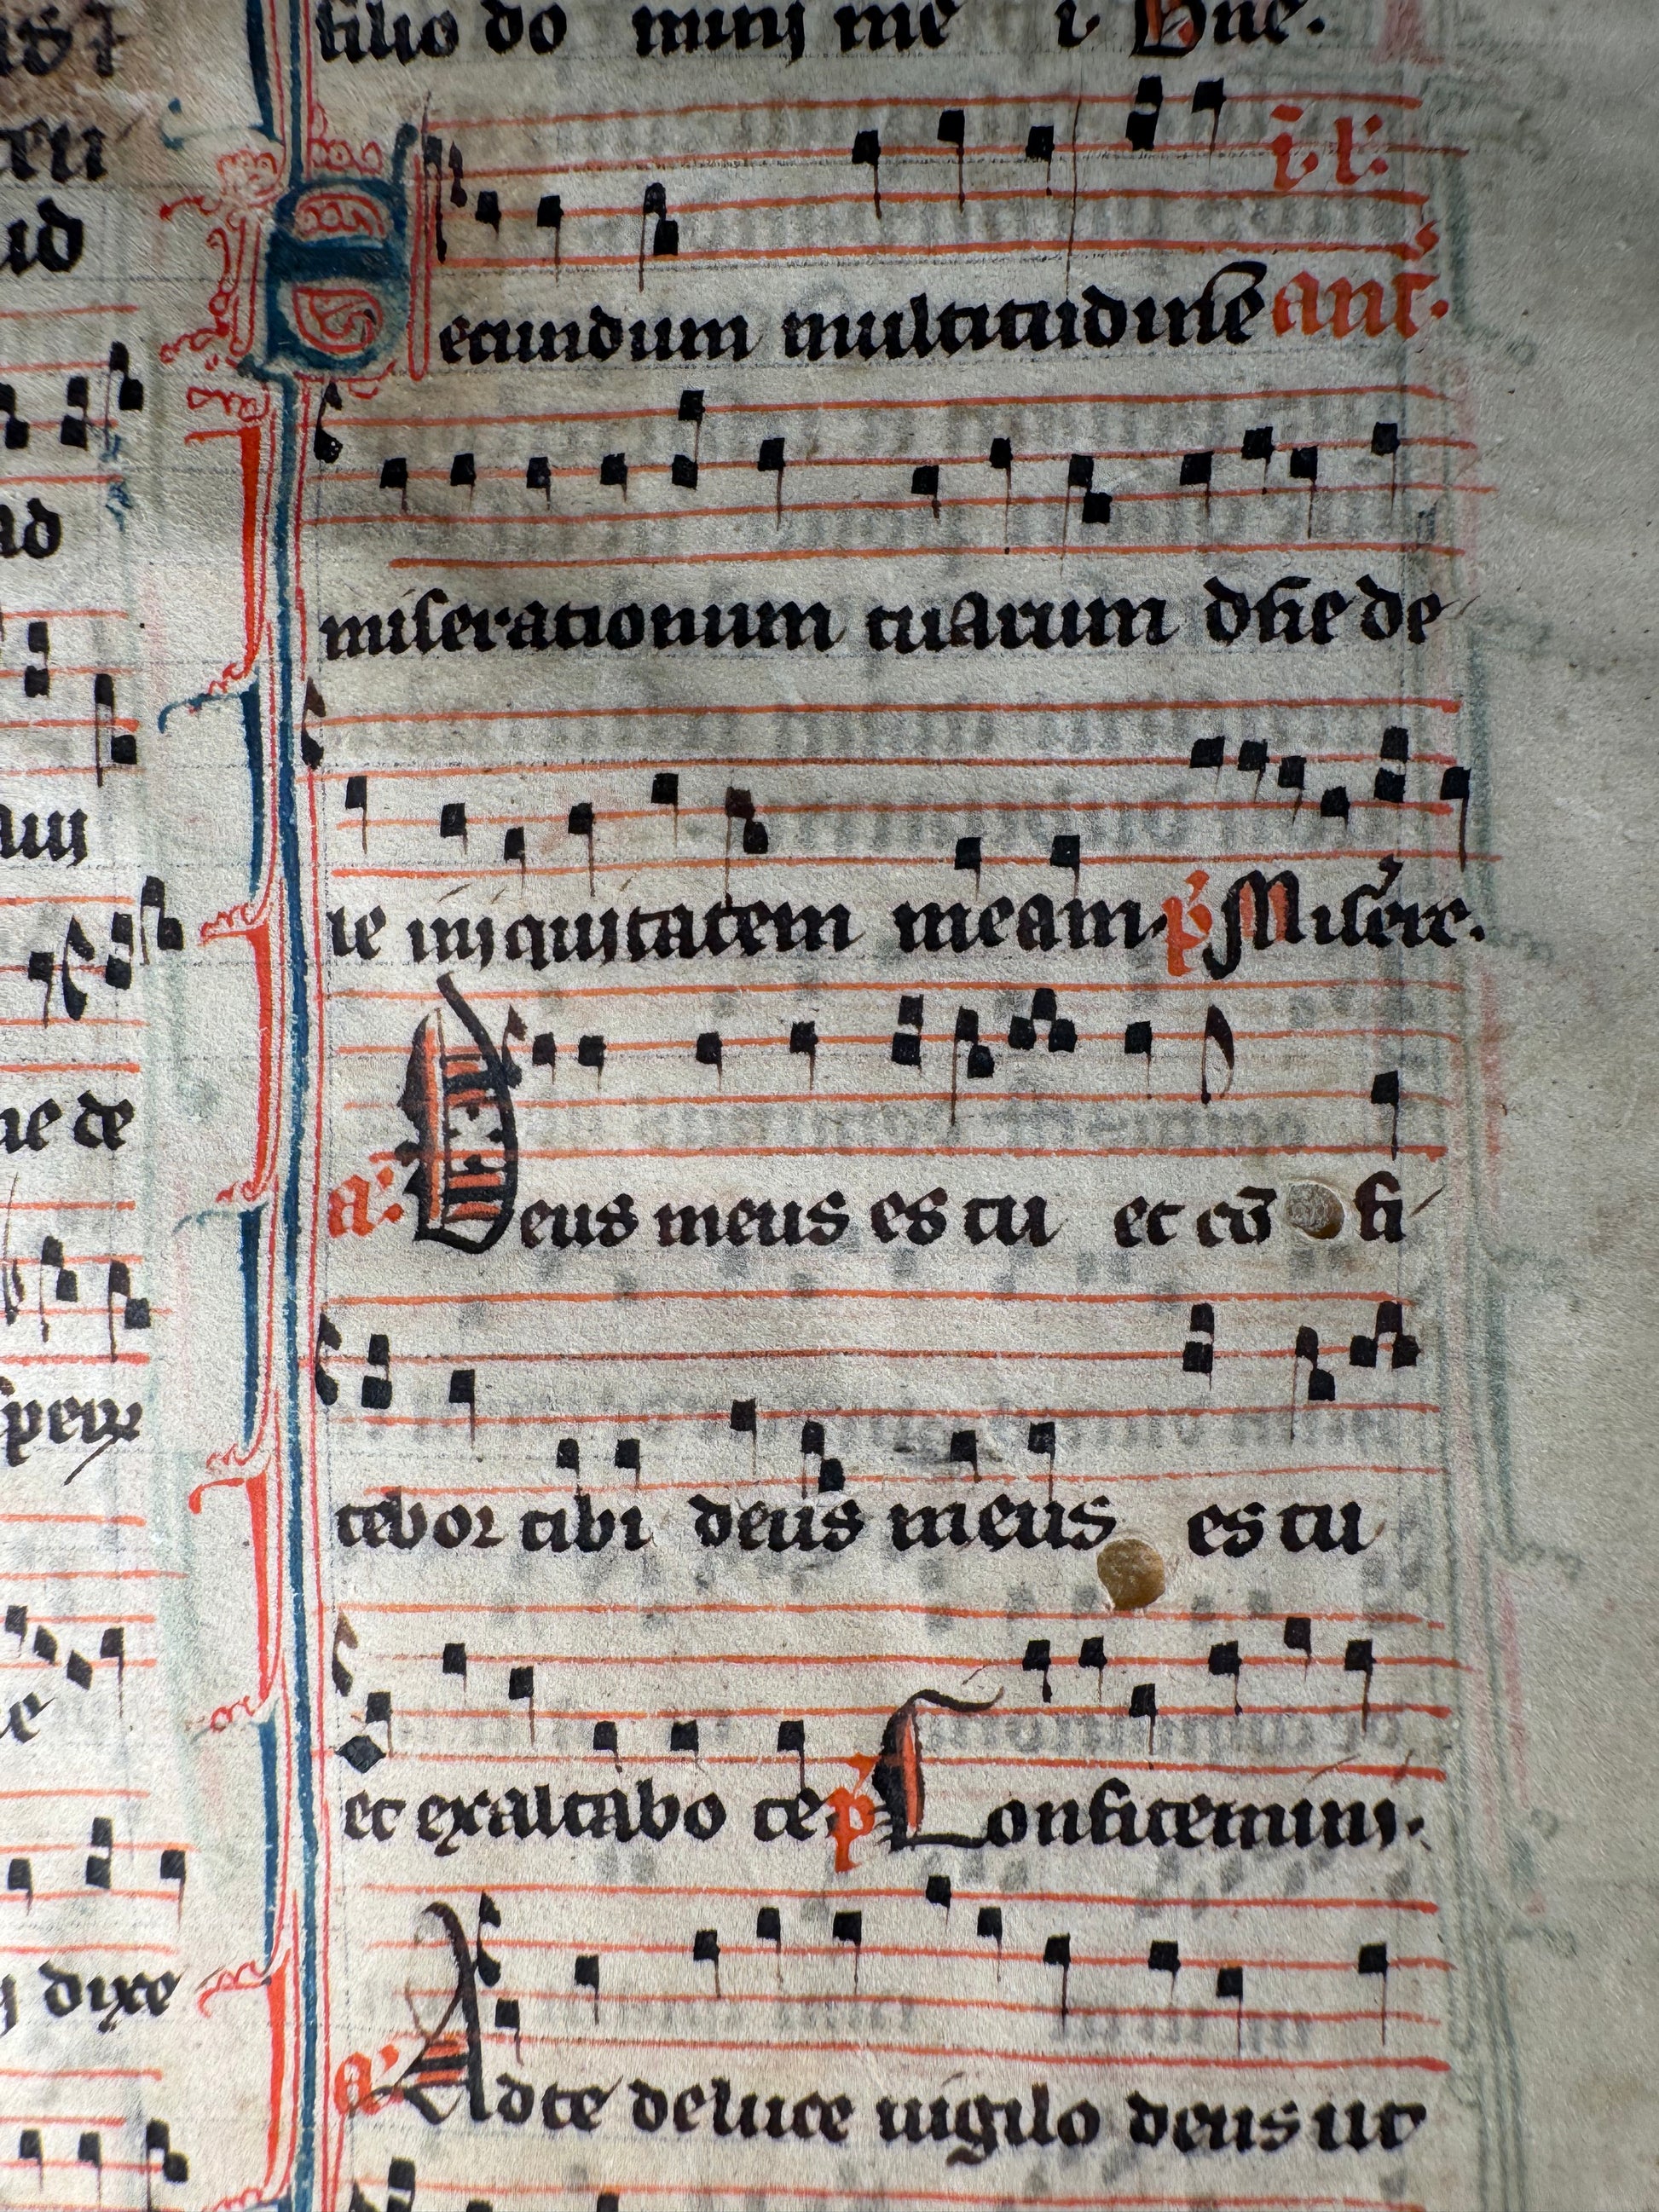 filio do minij me i. Bne.
i. l:
Secundum multitudinē ant.
miserationum tuarum dn̄e de
le iniquitatem meam. p̄ Misere.
a: Deus meus es tu et cō fi
tebor tibi deus meus es tu
et exaltabo te p̄ Confitemini.
a: Ad te de luce uigilo deus ut
ten
ud
ad
am
ne de
sper
dixe